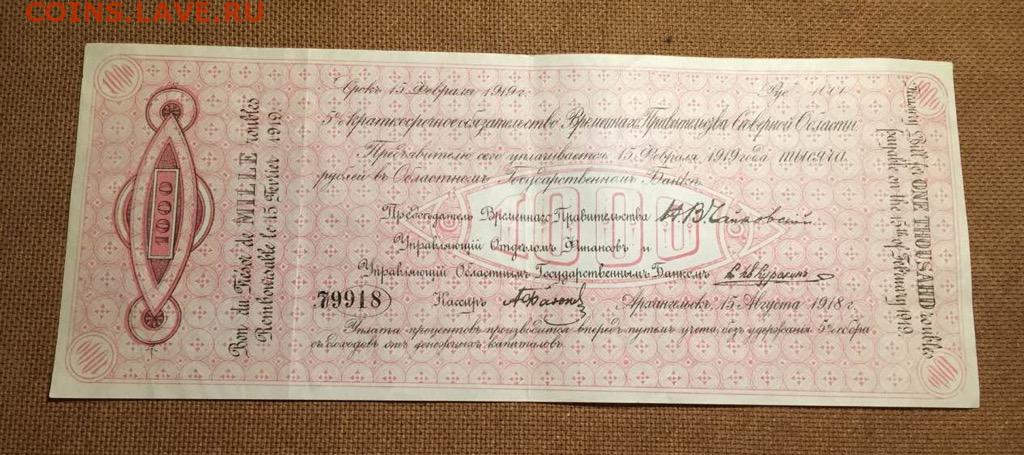 COINS.LAVE.RU
Срокъ 15 Февраля 1919 г.
5% краткосрочное обязательство Временнаго Правительства Сѣверной Области
Предъявителю сего уплачивается 15 Февраля 1919 года тысяча
рублей въ Областномъ Государственномъ Банкѣ
1000
Предсѣдатель Временнаго Правительства Н В Чайковский
Управляющій Отдѣломъ Финансовъ и
Управляющій Областнымъ Государственнымъ Банкомъ
79918 Кассиръ
Архангельскъ, 15 Августа 1918 г.
Уплата процентовъ производится впередъ путемъ учета, безъ удержанія 5% сбора
съ доходовъ отъ денежныхъ капиталовъ.
1000
Bon du Trésor de MILLE roubles
Remboursable le 15 Février 1919.
Treasury Bill for ONE THOUSAND roubles
payable on the 15 of February 1919
1000
1000
1000
1000